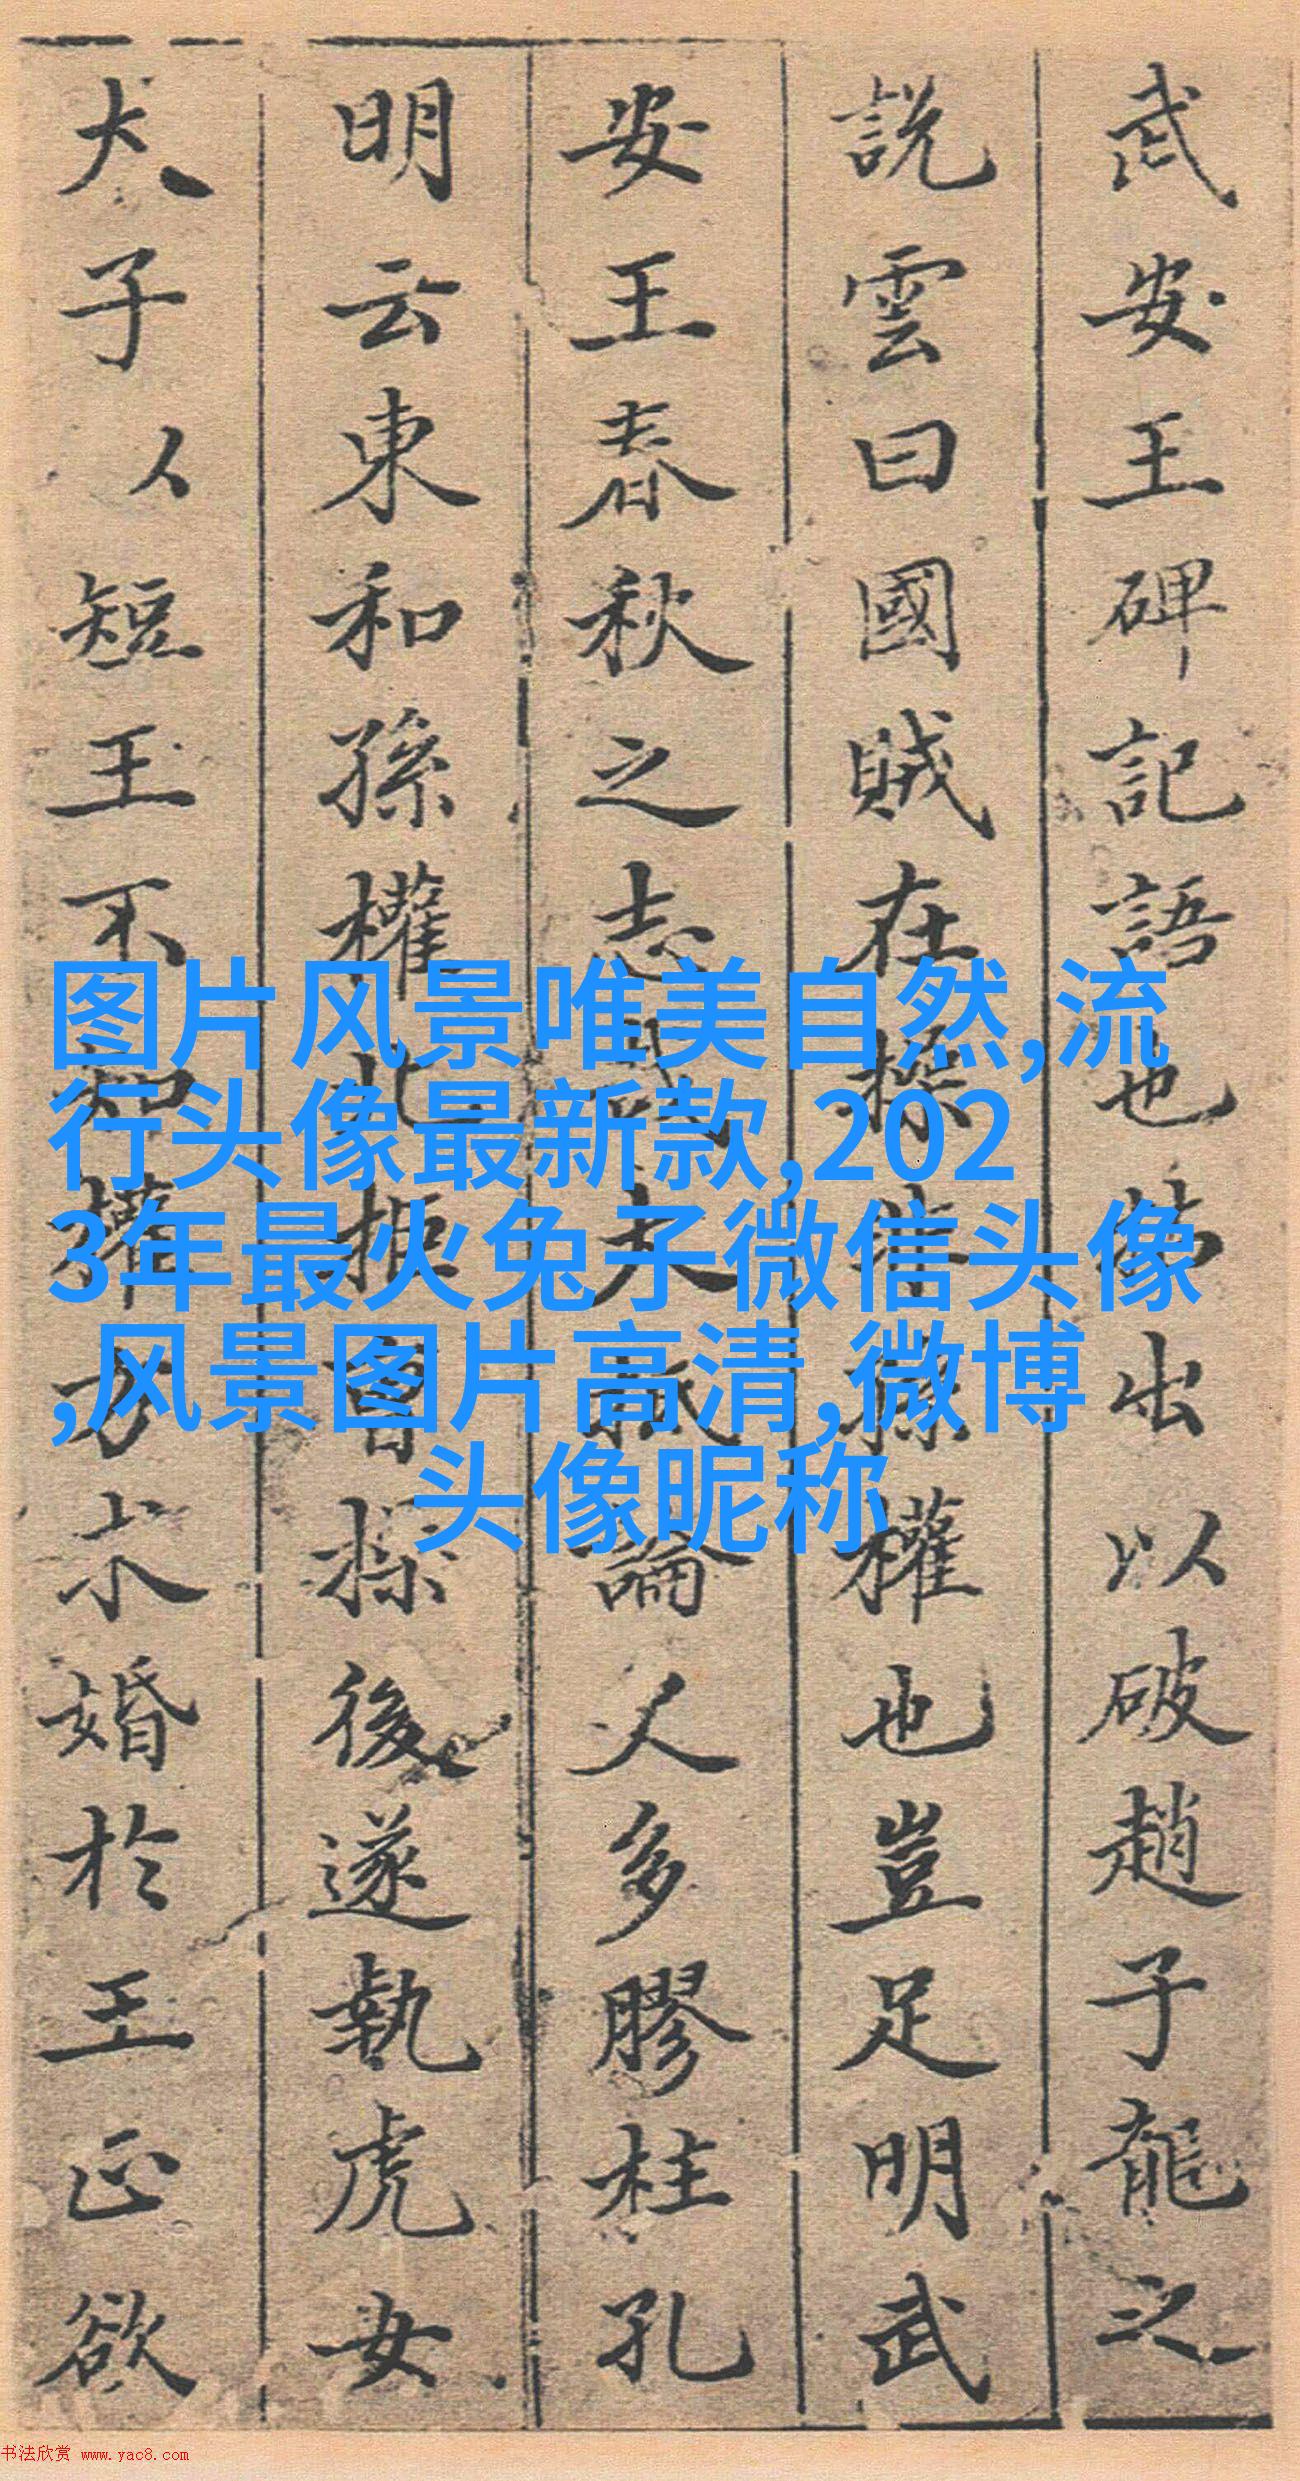 武安王碑記語也出以破趙子龍之
說雲曰國賊在操非孫權也豈足明武
安王春秋之志哉大抵論人多膠柱孔
明云東和孫權北拒曹操後遂執虎女
犬子以短王不知權方求婚於王正欲
图片风景唯美自然,流
行头像最新款,202
3年最火兔子微信头像
,风景图片高清,微博
头像昵称
书法欣赏 www.yac8.com